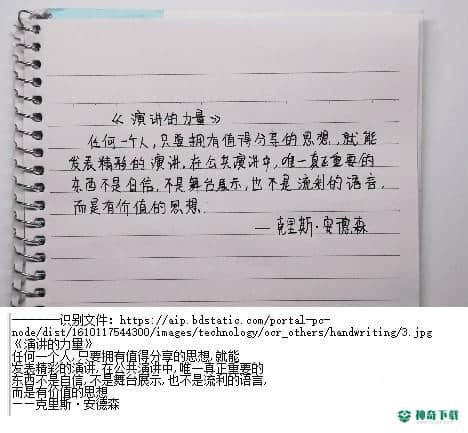 《演讲的力量》
任何一个人,只要拥有值得分享的思想,就能
发表精彩的演讲,在公共演讲中,唯一真正重要的
东西不是自信,不是舞台展示,也不是流利的语言,
而是有价值的思想.
——克里斯·安德森
————识别文件: https://aip.bdstatic.com/portal-pc-
node/dist/1610117544300/images/technology/ocr_others/handwriting/3.jpg
《演讲的力量》
任何一个人,只要拥有值得分享的思想,就能
发表精彩的演讲,在公共演讲中,唯一真正重要的
东西不是自信,不是舞台展示,也不是流利的语言,
而是有价值的思想
——克里斯·安德森
神奇下载